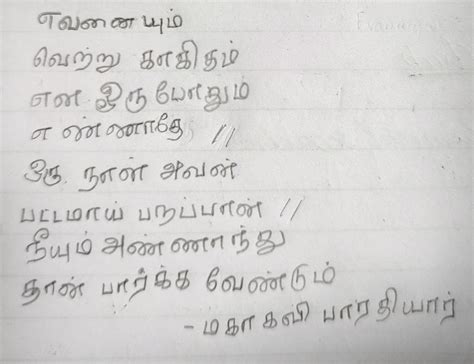 எவனையும்
வெற்று காகிதம்
என ஒரு போதும்
எண்ணாதே //
ஒரு நாள் அவன்
பட்டமாய் பறப்பான் //
நீயும் அண்ணாந்து
தான் பார்க்க வேண்டும்
- மகாகவி பாரதியார்